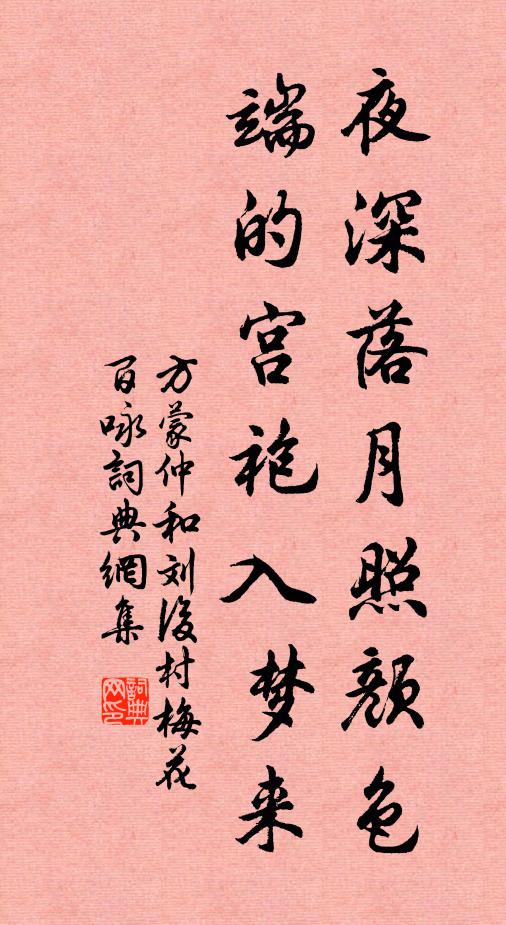 夜深落月照颜色
端的宫袍入梦来
方蒙仲和刘后村梅花
百咏詞典網集
詞典
网印